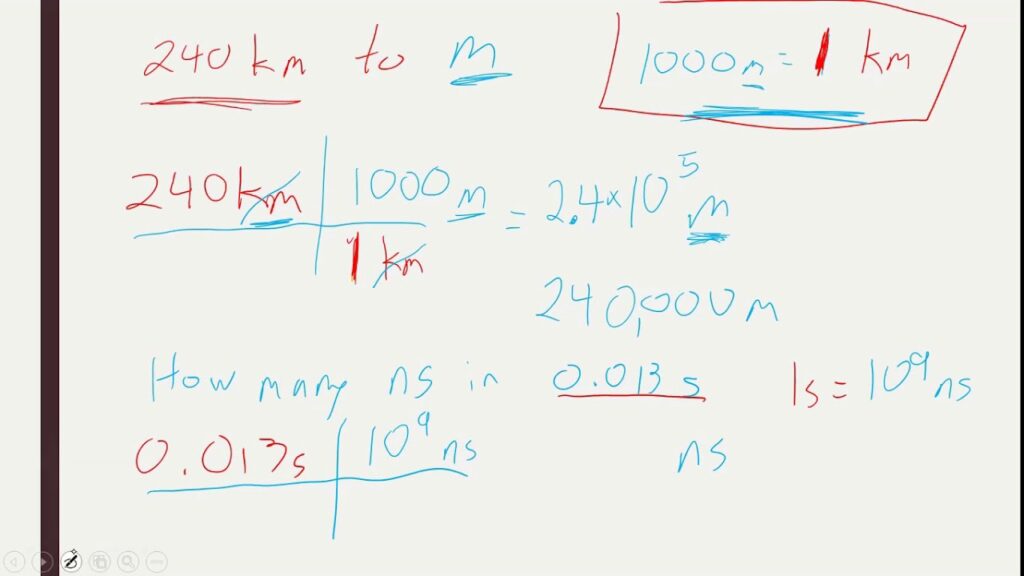 240 km to m
1000 m = 1 km
240 km 1000 m = 2.4 × 10⁵ m
1 km
240,000 m
How many ns in 0.013 s
1s = 10⁹ ns
0.013s 10⁹ ns
ns